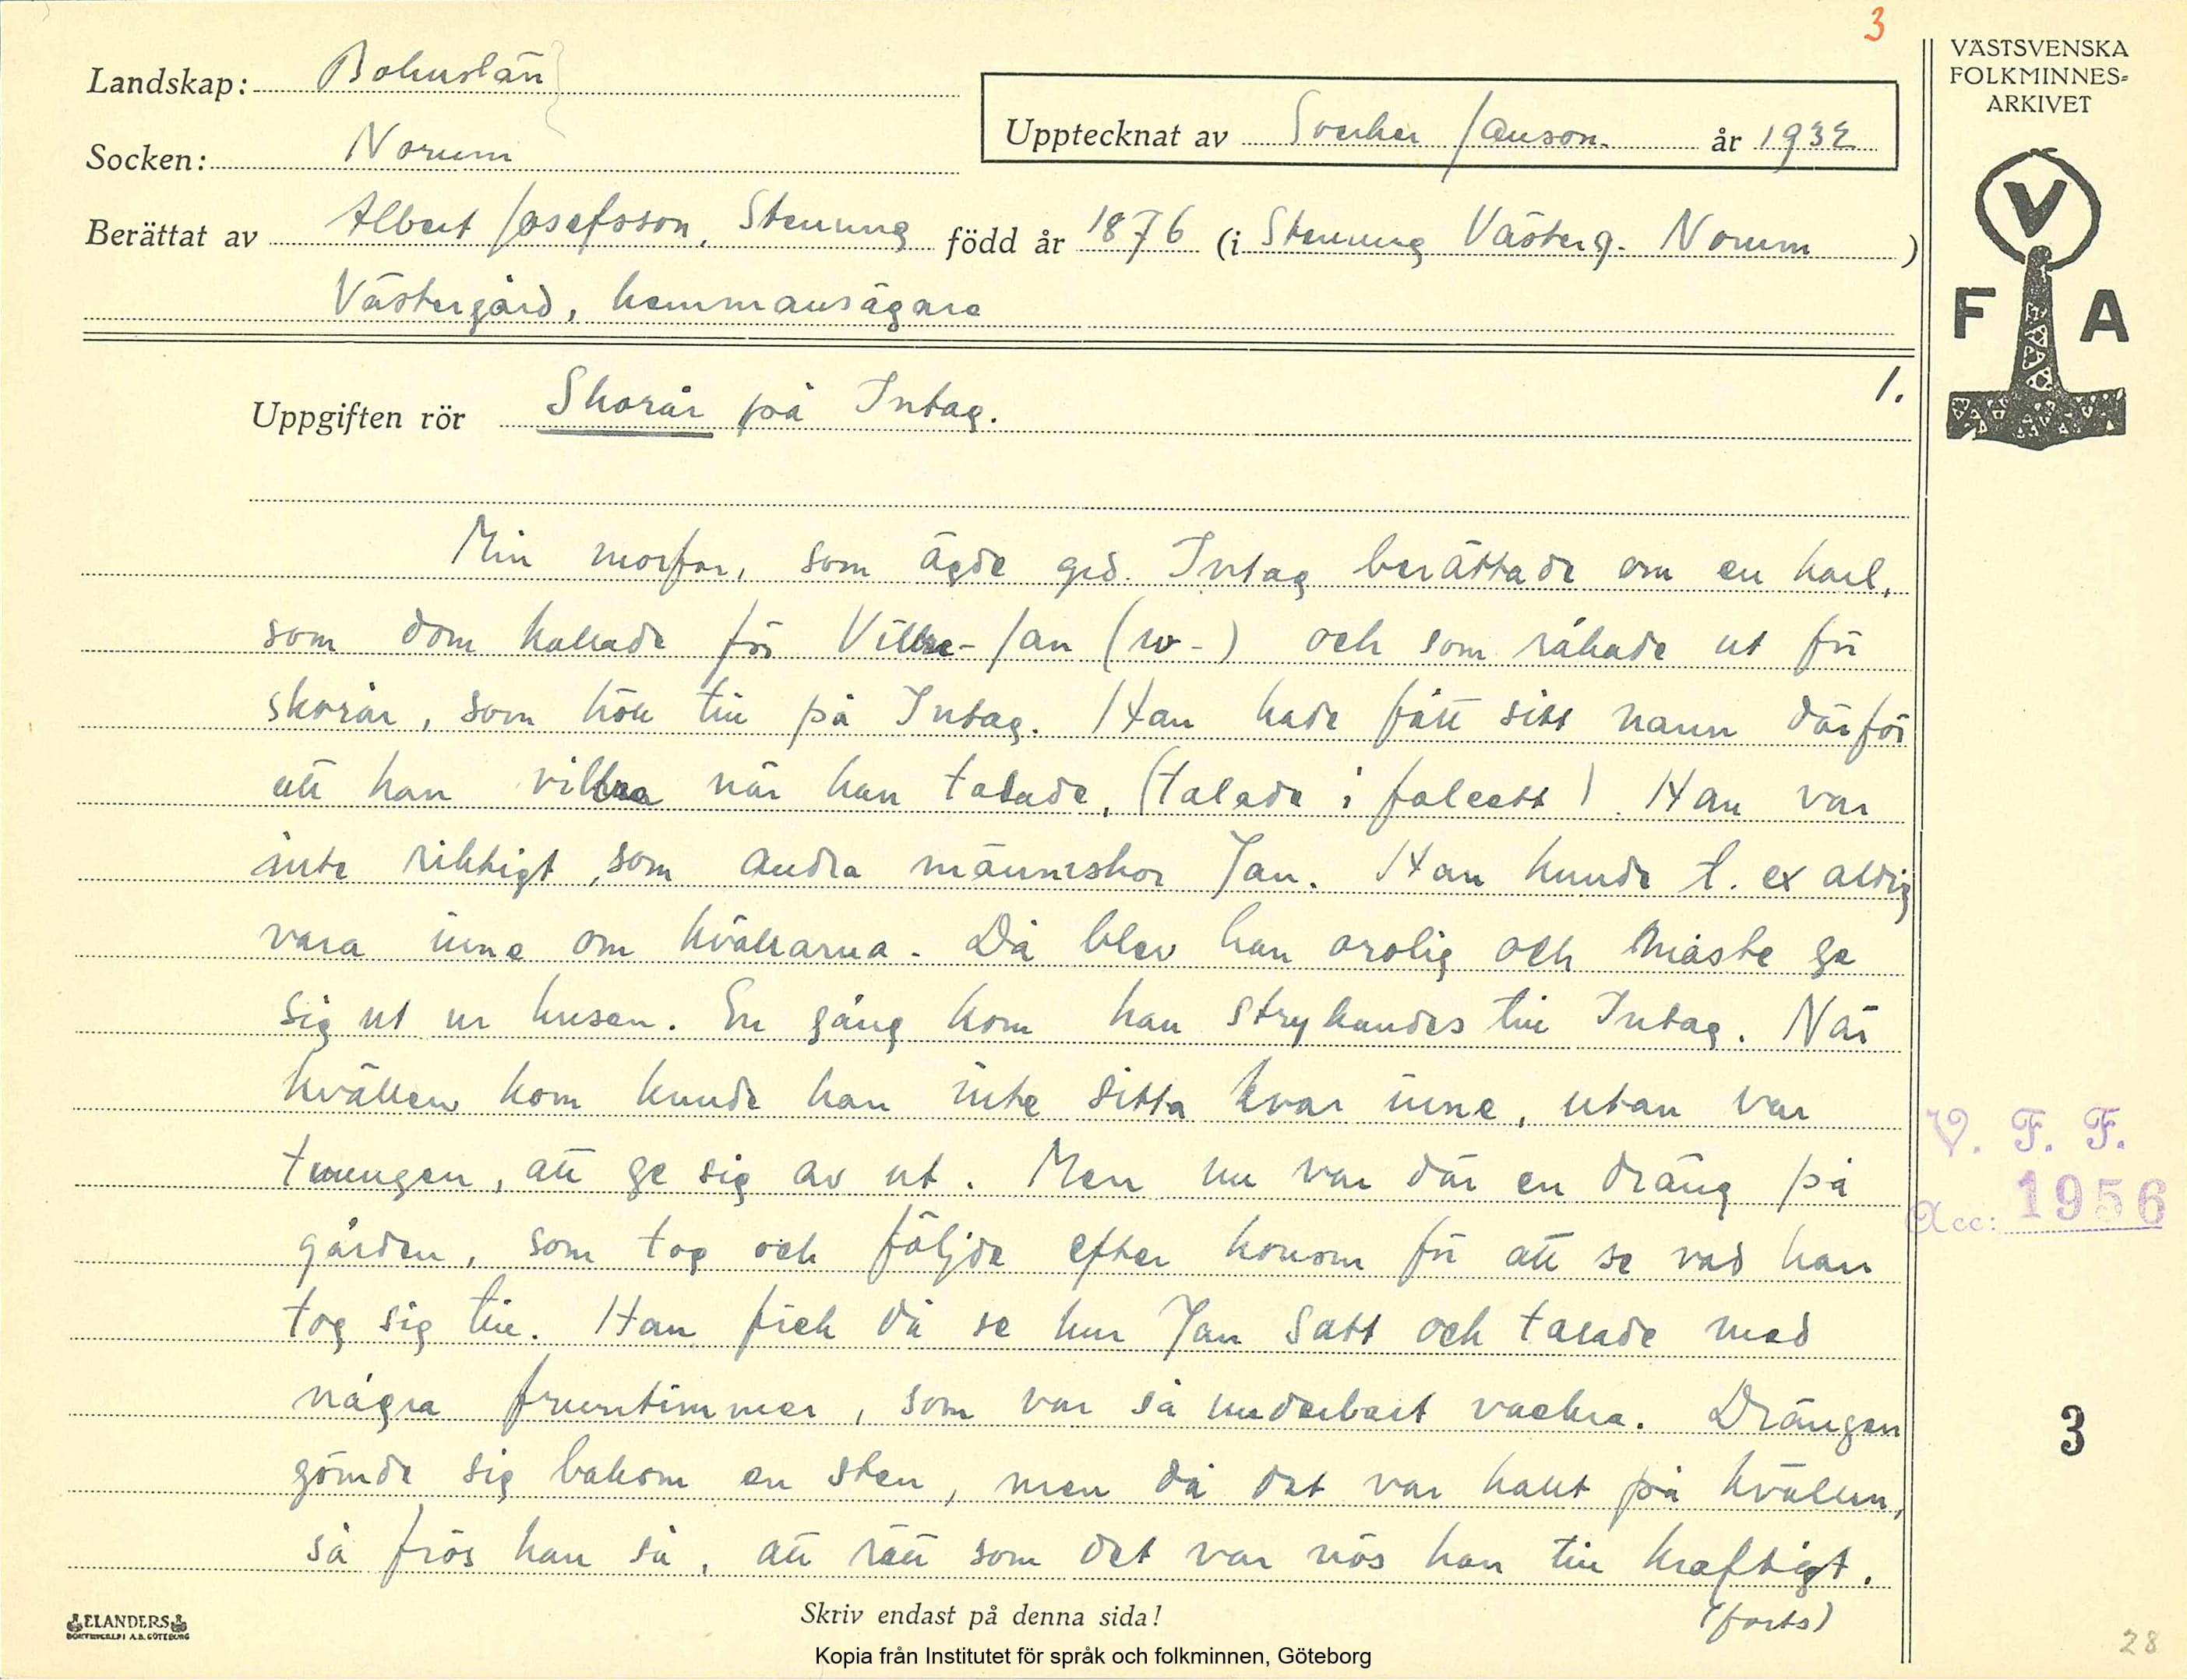 3
VÄSTSVENSKA
FOLKMINNES-
ARKIVET
Landskap: Bohuslän
Upptecknat av Sverker Janson. år 1932
Socken: Norum
Berättat av Albert Josefsson, Stenung född år 1876 (i Stenung Västerg. Norum )
Västergård, hemmansägare
V
F A
1.
Uppgiften rör Skorår på Intag.
Min morfar, som ägde grd. Intag berättade om en karl,
som dom kallade för Villre-Jan (w-) och som råkade ut för
skorår, som höll till på Intag. Han hade fått sitt namn därför
att han villra när han talade, (talade i falcett). Han var
inte riktigt som andra människor Jan. Han kunde t. ex aldrig
vara inne om kvällarna. Då blev han orolig och måste ge
sig ut ur husen. En gång kom han strykandes till Intag. När
kvällen kom kunde han inte sitta kvar inne, utan var
tvungen, att ge sig av ut. Men nu var där en dräng på
gården, som tog och följde efter honom för att se vad han
tog sig till. Han fick då se hur Jan satt och talade med
några fruntimmer, som var så underbart vackra. Drängen
gömde sig bakom en sten, men då det var kallt på kvällen,
så frös han så, att rätt som det var nös han till kraftigt.
(forts)
V. F. F.
Acc: 1956
3
ELANDERS
BOKTRYCKERI A.B. GÖTEBORG
Skriv endast på denna sida!
Kopia från Institutet för språk och folkminnen, Göteborg
28